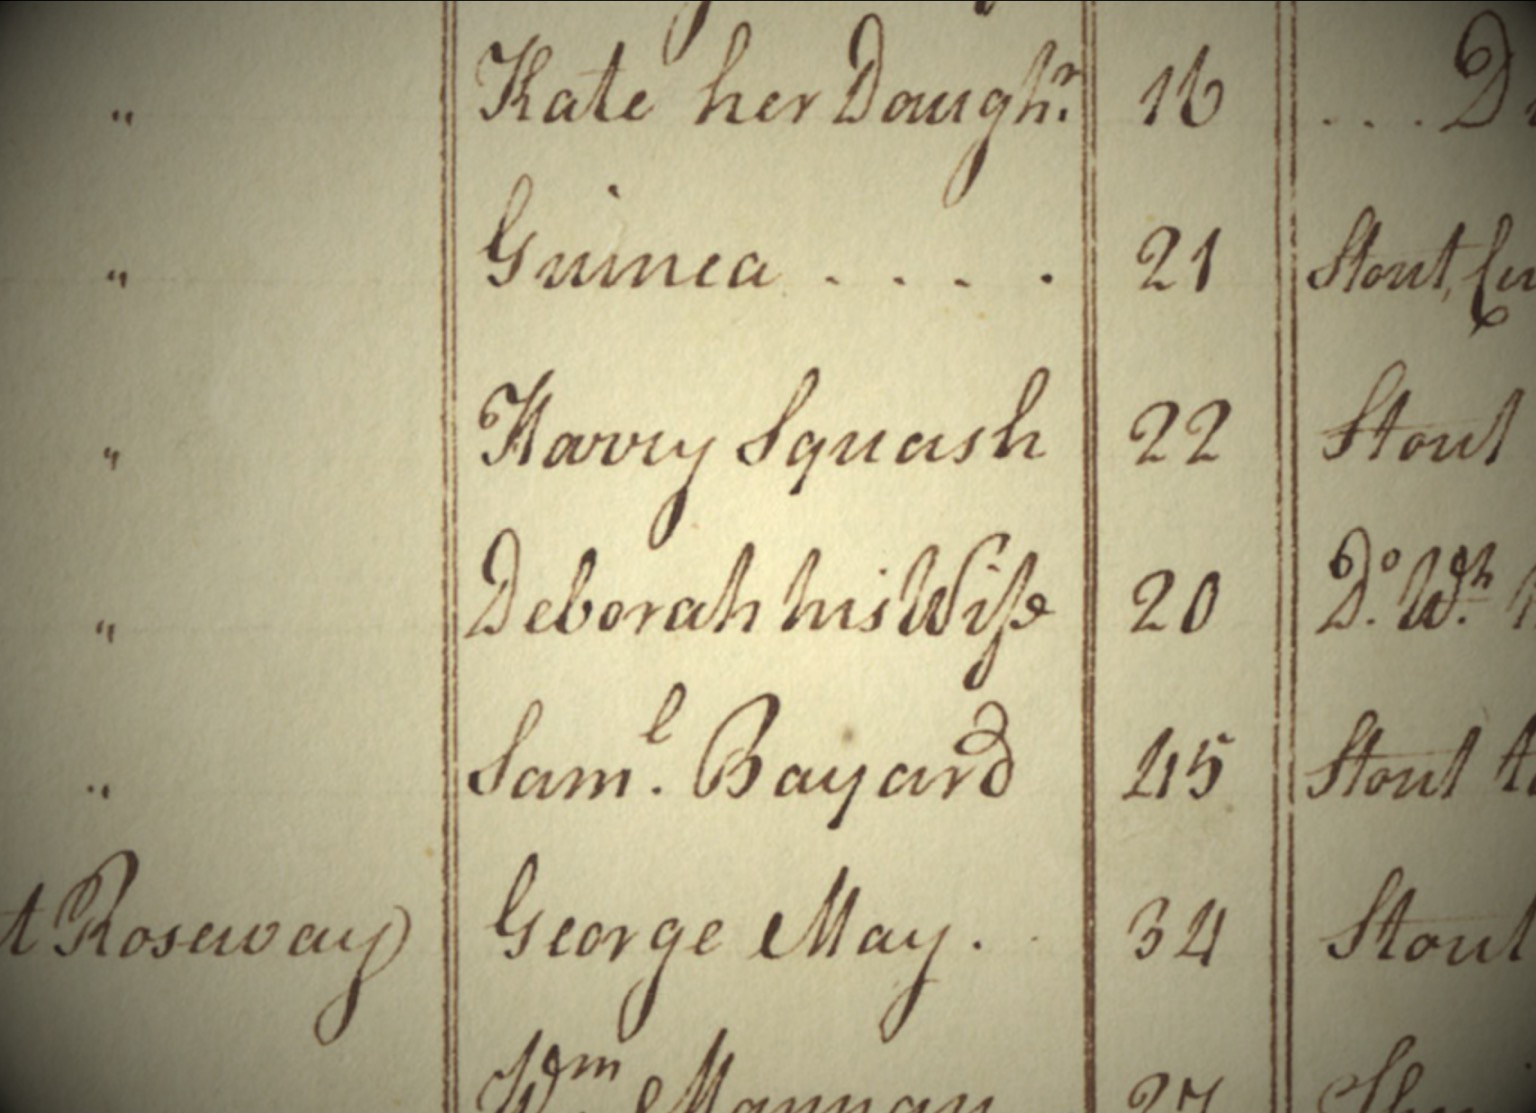 " Kate her Daughr. 16 . . . .
" Guinea . . . . 21 Stout,
" Harry Squash 22 Stout
" Deborah his Wife 20 Do. Wth.
" Saml. Bayard 45 Stout
t Roseway) George May. 34 Stout
Wm. Mannan 27